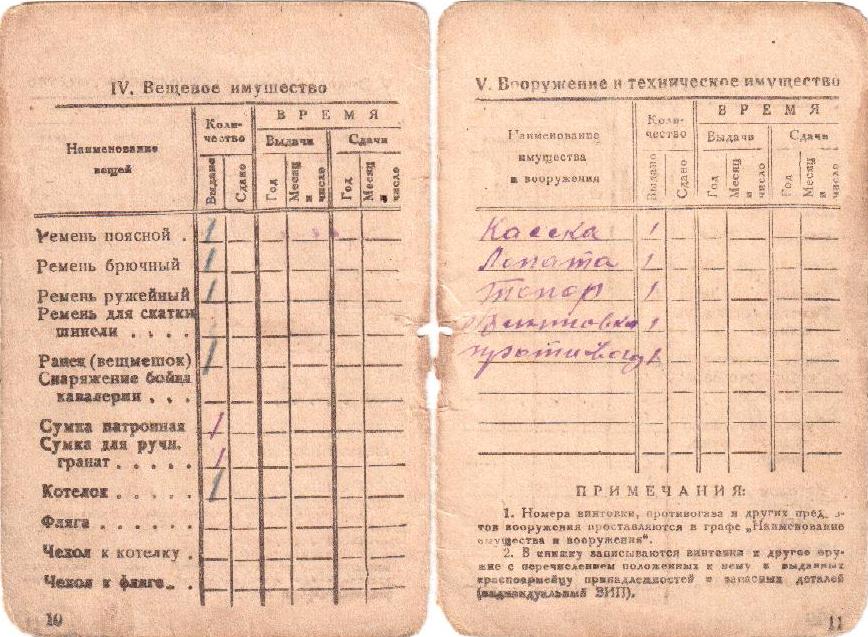 IV. Вещевое имущество
Наименование
вещей
Коли-
чество
ВРЕМЯ
Выдачи
Сдачи
Выдано
Сдано
Год
Месяц и число
Год
Месяц и число
Ремень поясной . 1
Ремень брючный 1
Ремень ружейный 1
Ремень для скатки
шинели . . . .
Ранец (вещмешок) 1
Снаряжение бойца
кавалерии . . .
Сумка патронная 1
Сумка для ручн.
гранат . . . . . 1
Котелок . . . . . 1
Фляга . . . . . .
Чехол к котелку .
Чехол к фляге . .
10
V. Вооружение и техническое имущество
Наименование
имущества
и вооружения
Коли-
чество
ВРЕМЯ
Выдачи
Сдачи
Выдано
Сдано
Год
Месяц и число
Год
Месяц и число
Касска 1
Лопата 1
Топор 1
Винтовка 1
противогаз 1
ПРИМЕЧАНИЯ:
1. Номера винтовки, противогаза и других пред-
тов вооружения проставляются в графе „Наименование
имущества и вооружения".
2. В книжку записываются винтовка и другое ору-
жие с перечислением положенных к нему и выданных
красноармейцу принадлежностей и запасных деталей
(индивидуальный ЗИП).
11